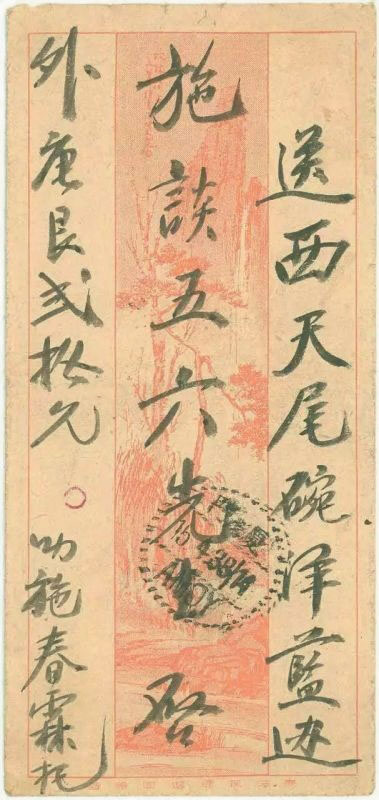 送西天尾碗洋藍边
施談五六先生啓
外唐艮弍拾元
叻施春霖托